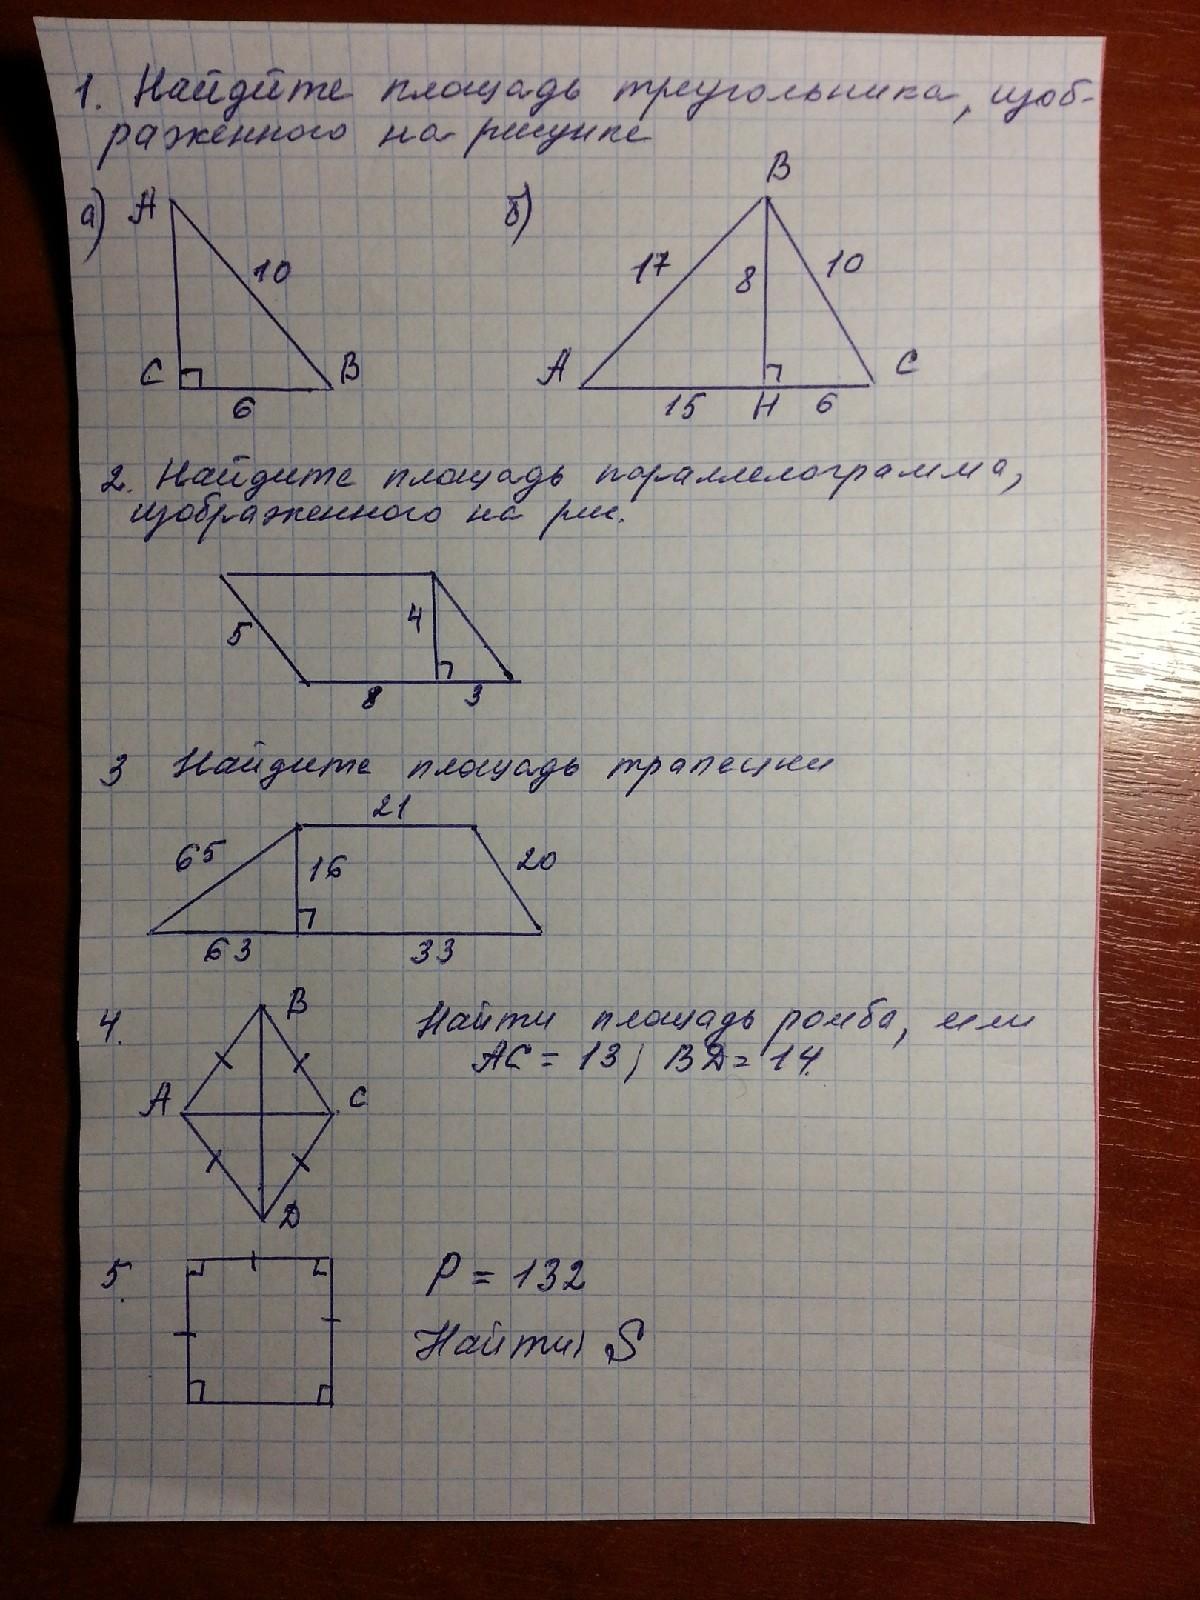 1. Найдите площадь треугольника, изоб-
раженного на рисунке
а) A 10 C B 6
б) B 17 8 10 A C 15 H 6
2. Найдите площадь параллелограмма,
изображенного на рис.
5 4 8 3
3 Найдите площадь трапеции
21
65 16 20
63 33
4. B Найти площадь ромба, если
AC = 13; BD = 14.
A C
D
5. P = 132
Найти S